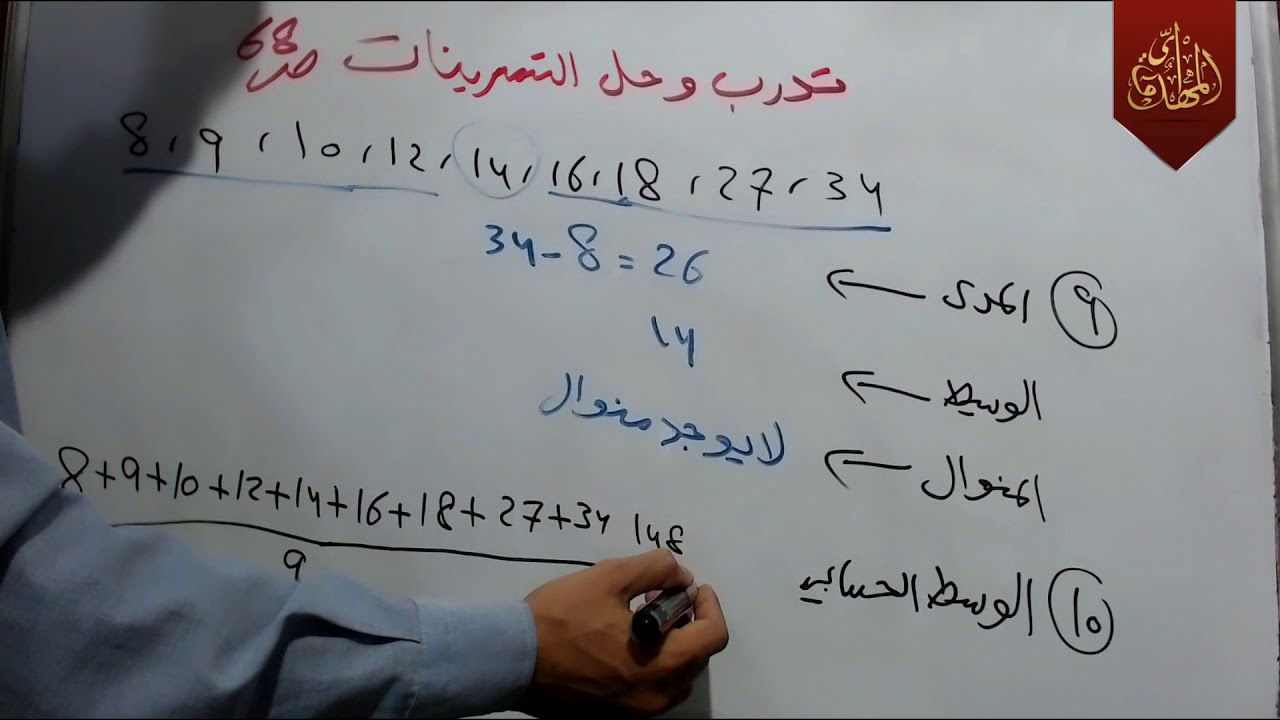 تدرب وحل التمرينات ص68
8, 9, 10, 12, 14, 16, 18, 27, 34
34-8=26
9 المدى ←
14
الوسيط ←
لا يوجد منوال
المنوال ←
8+9+10+12+14+16+18+27+34 148
9
10 الوسط الحسابي